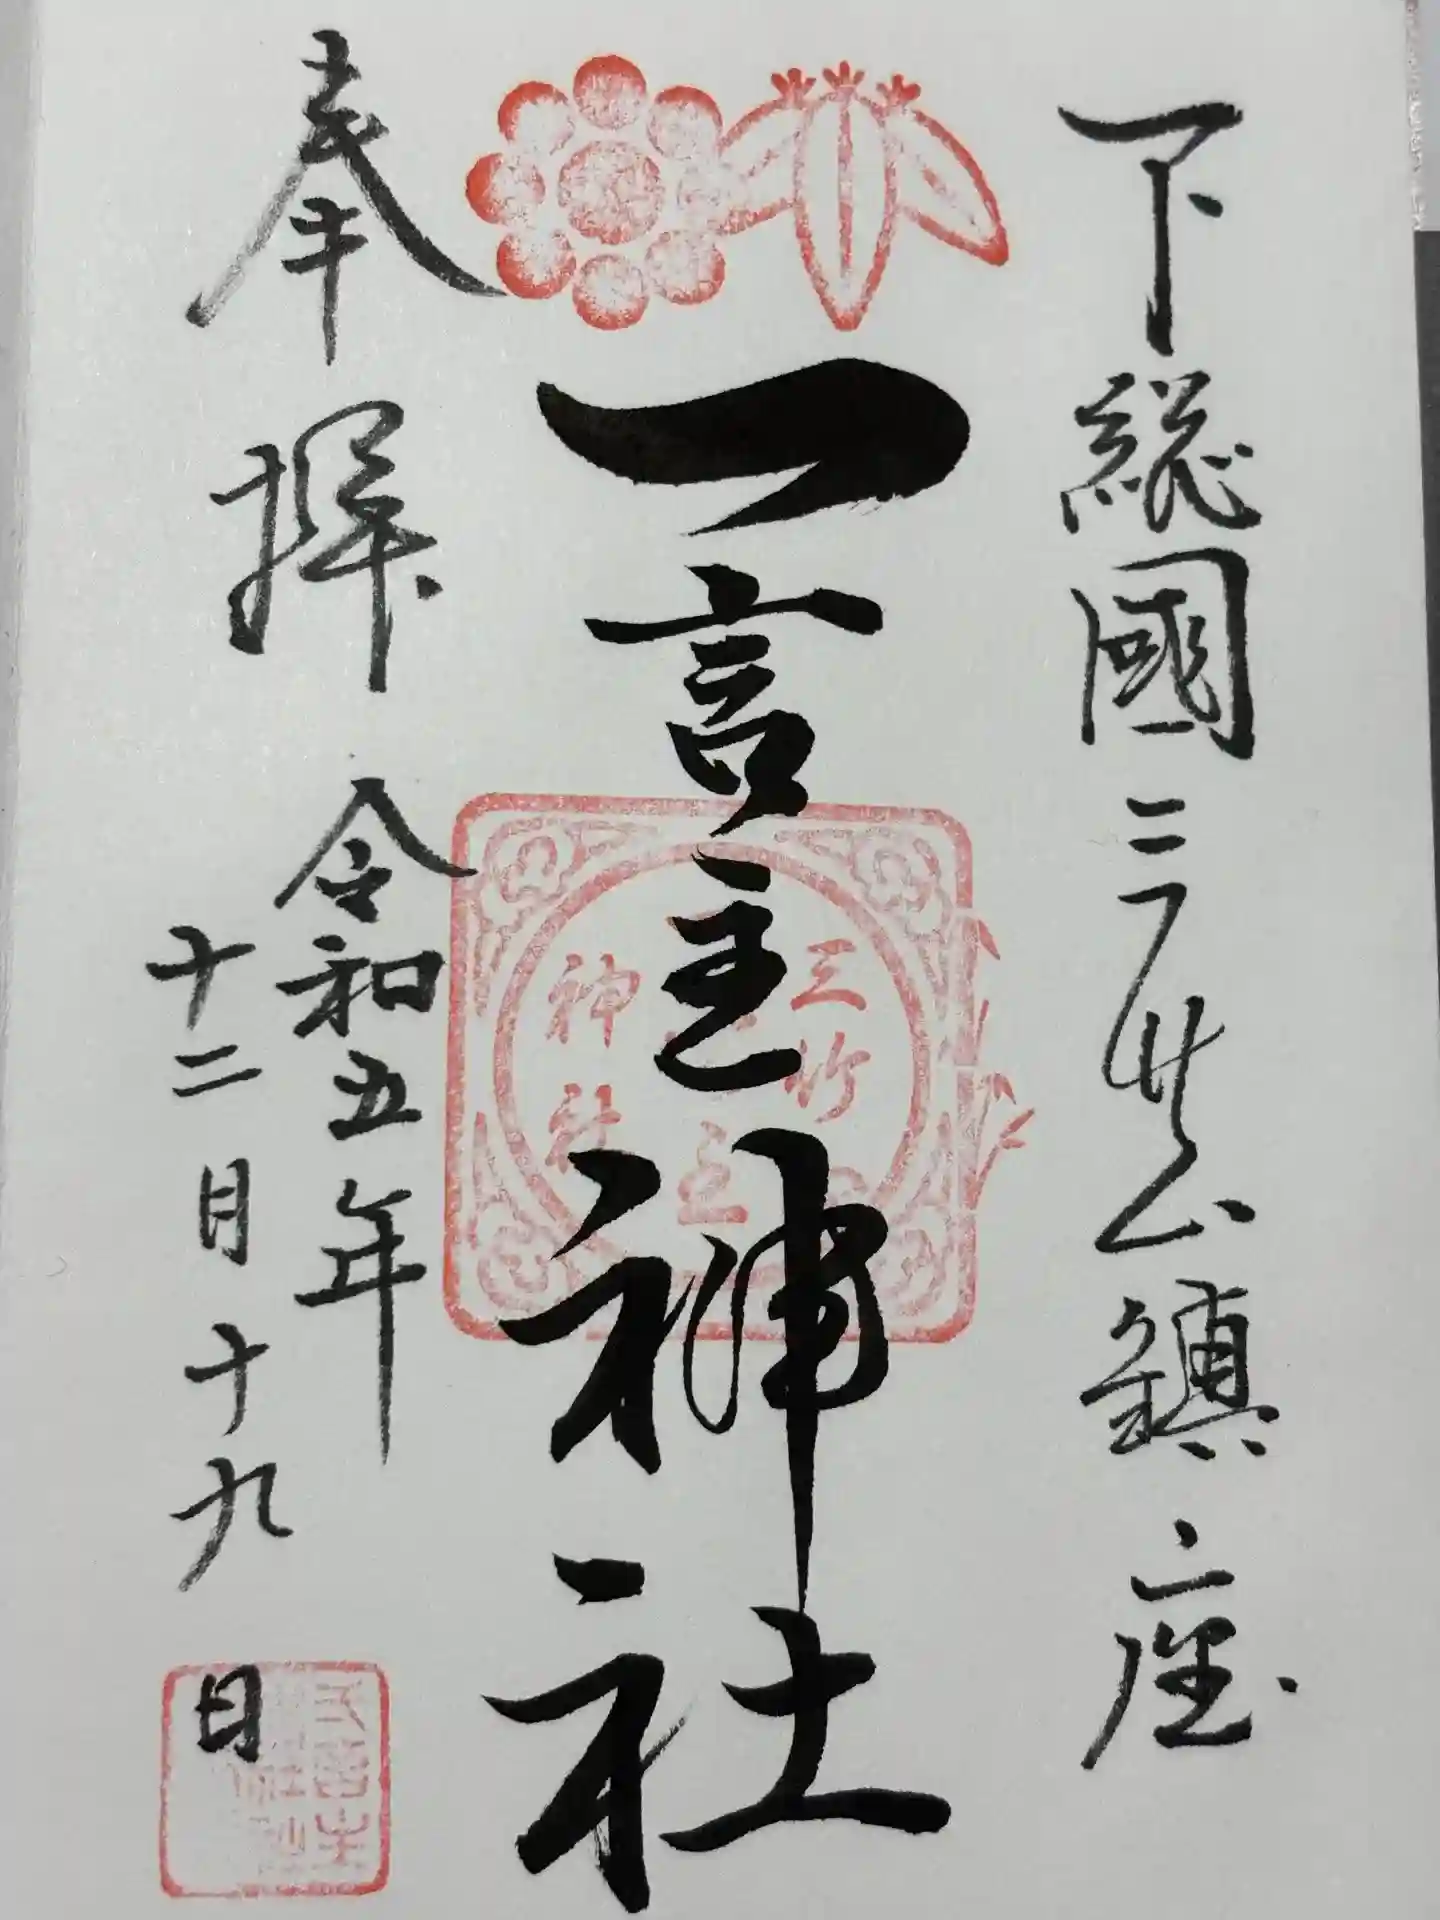 下総國三竹山鎮座
一言主神社
三竹
主
神社
奉拝
令和五年
十二月十九日